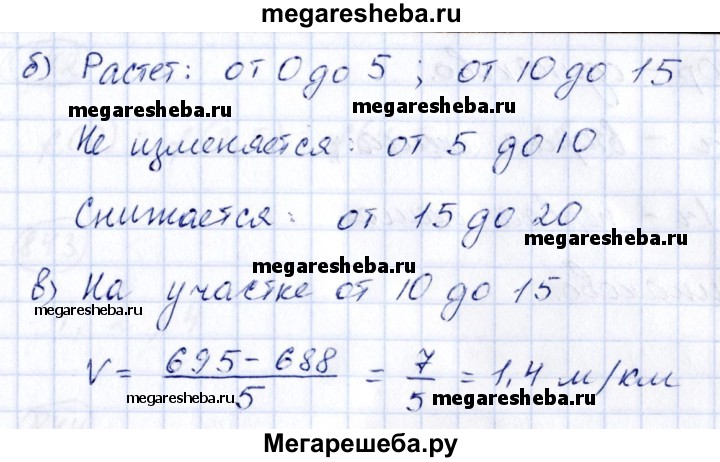 megaresheba.ru
б) Растет: от 0 до 5 ; от 10 до 15
megaresheba.ru megaresheba.ru
Не изменяется: от 5 до 10
Снижается: от 15 до 20
megaresheba.ru
megaresheba.ru
в) На участке от 10 до 15
megaresheba.ru
V = (695 - 688)/5 = 7/5 = 1,4 м/км
megaresheba.ru megaresheba.ru
Мегарешеба.ру